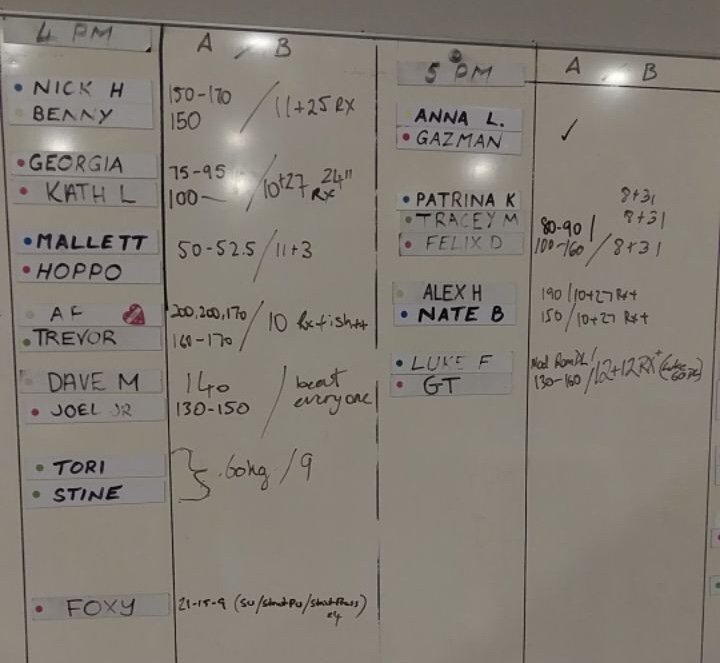 4 PM A / B
NICK H 150-170 / 11+25 RX
BENNY 150
GEORGIA 75-95 / 10+27 24" RX
KATH L 100-
MALLETT 50-52.5 / 11+3
HOPPO
AF 200,200,170 / 10 Rx+ish++
TREVOR 160-170
DAVE M 140 / beat everyone
JOEL JR 130-150
TORI 60kg / 9
STINE
FOXY 21-15-9 (SU/Strict PU/Strict Press)
5 PM A / B
ANNA L.
GAZMAN ✓
PATRINA K 8+31
TRACEY M 80-90 / 8+31
FELIX D 100-160 / 8+31
ALEX H 190 / 10+27 Rx+
NATE B 150 / 10+27 Rx+
LUKE F Mod Rom DL /
GT 130-160 / 12+12 RX+